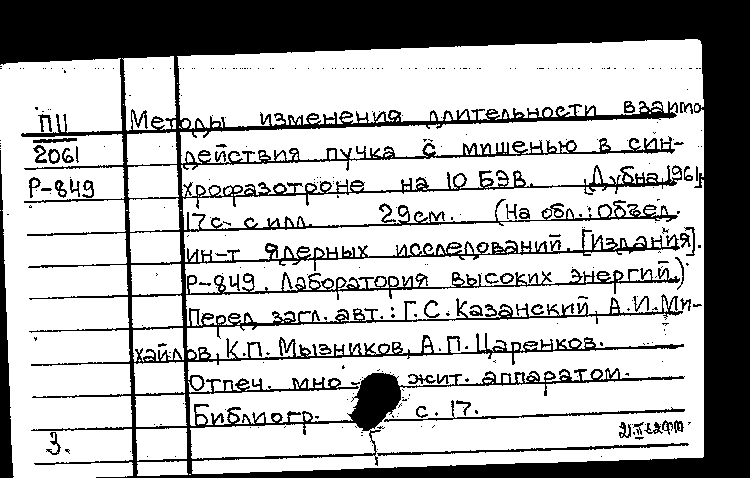 ПII Методы изменения длительности взаимо-
2061 действия пучка с мишенью в син-
Р-849 хрофазотроне на 10 БЭВ. [Дубна, 1961].
17 с. с илл. 29 см. (На обл.: Объед.
ин-т ядерных исследований. [Издания].
Р-849. Лаборатория высоких энергий.)
Перед загл. авт.: Г.С. Казанский, А.И. Ми-
хайлов, К.П. Мызников, А.П. Царенков.
Отпеч. мно- жит. аппаратом.
Библиогр. с. 17.
3.